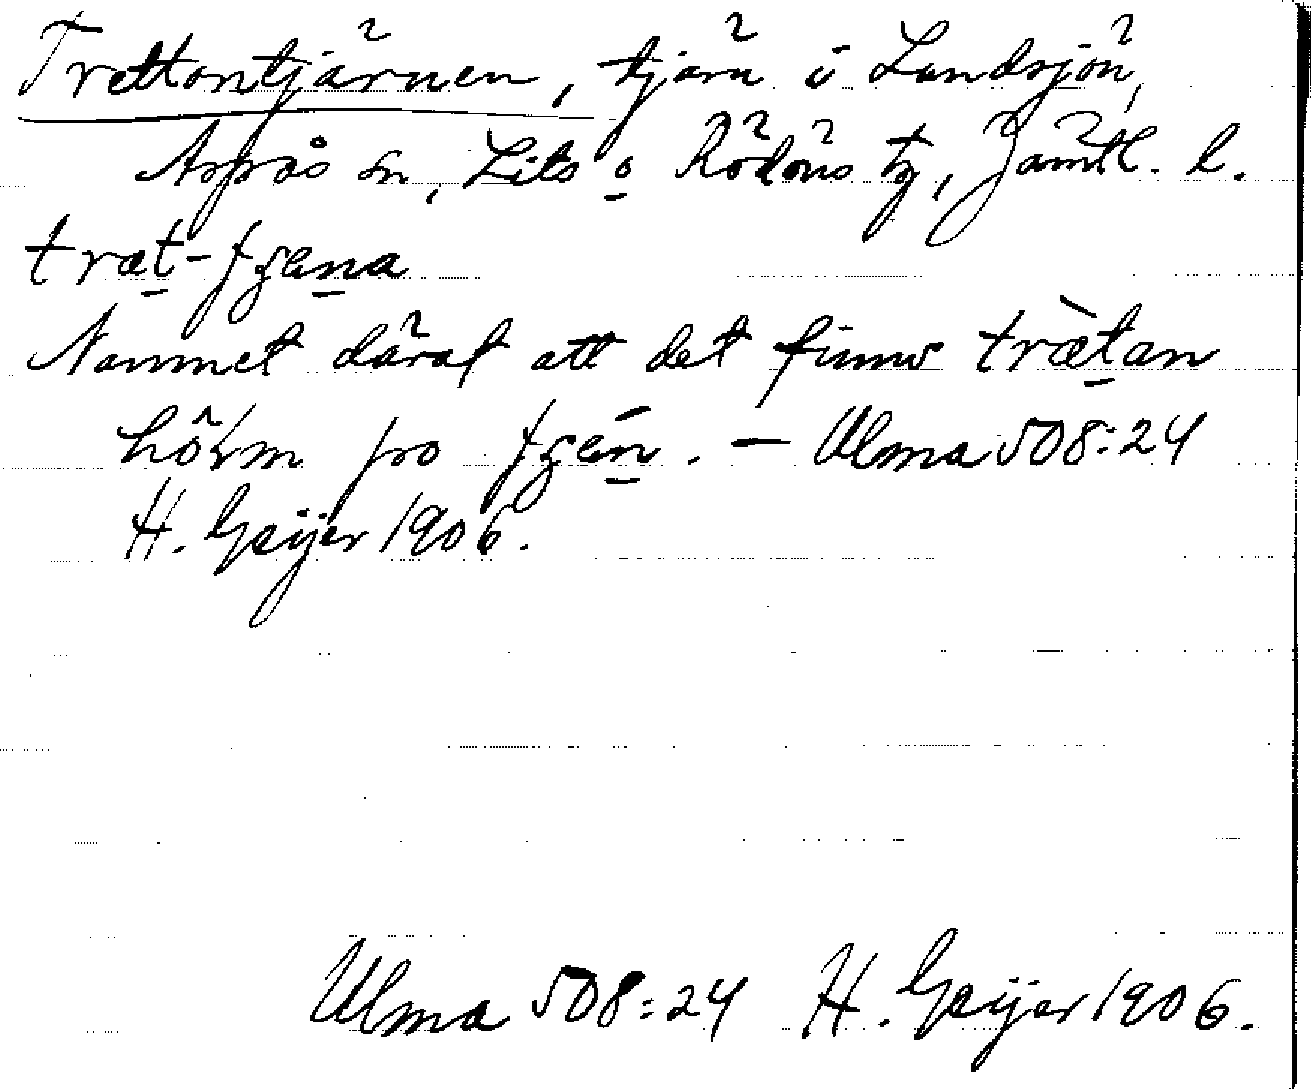 Trettontjärnen, tjärn i Landsjön,
Aspås sn, Lits o Rödöns tg, Jämtl. l.
træt-
Namnet däraf att det finns trætan
hörm po . – Ulma 508:24
H. Geijer 1906.
Ulma 508:24 H. Geijer 1906.